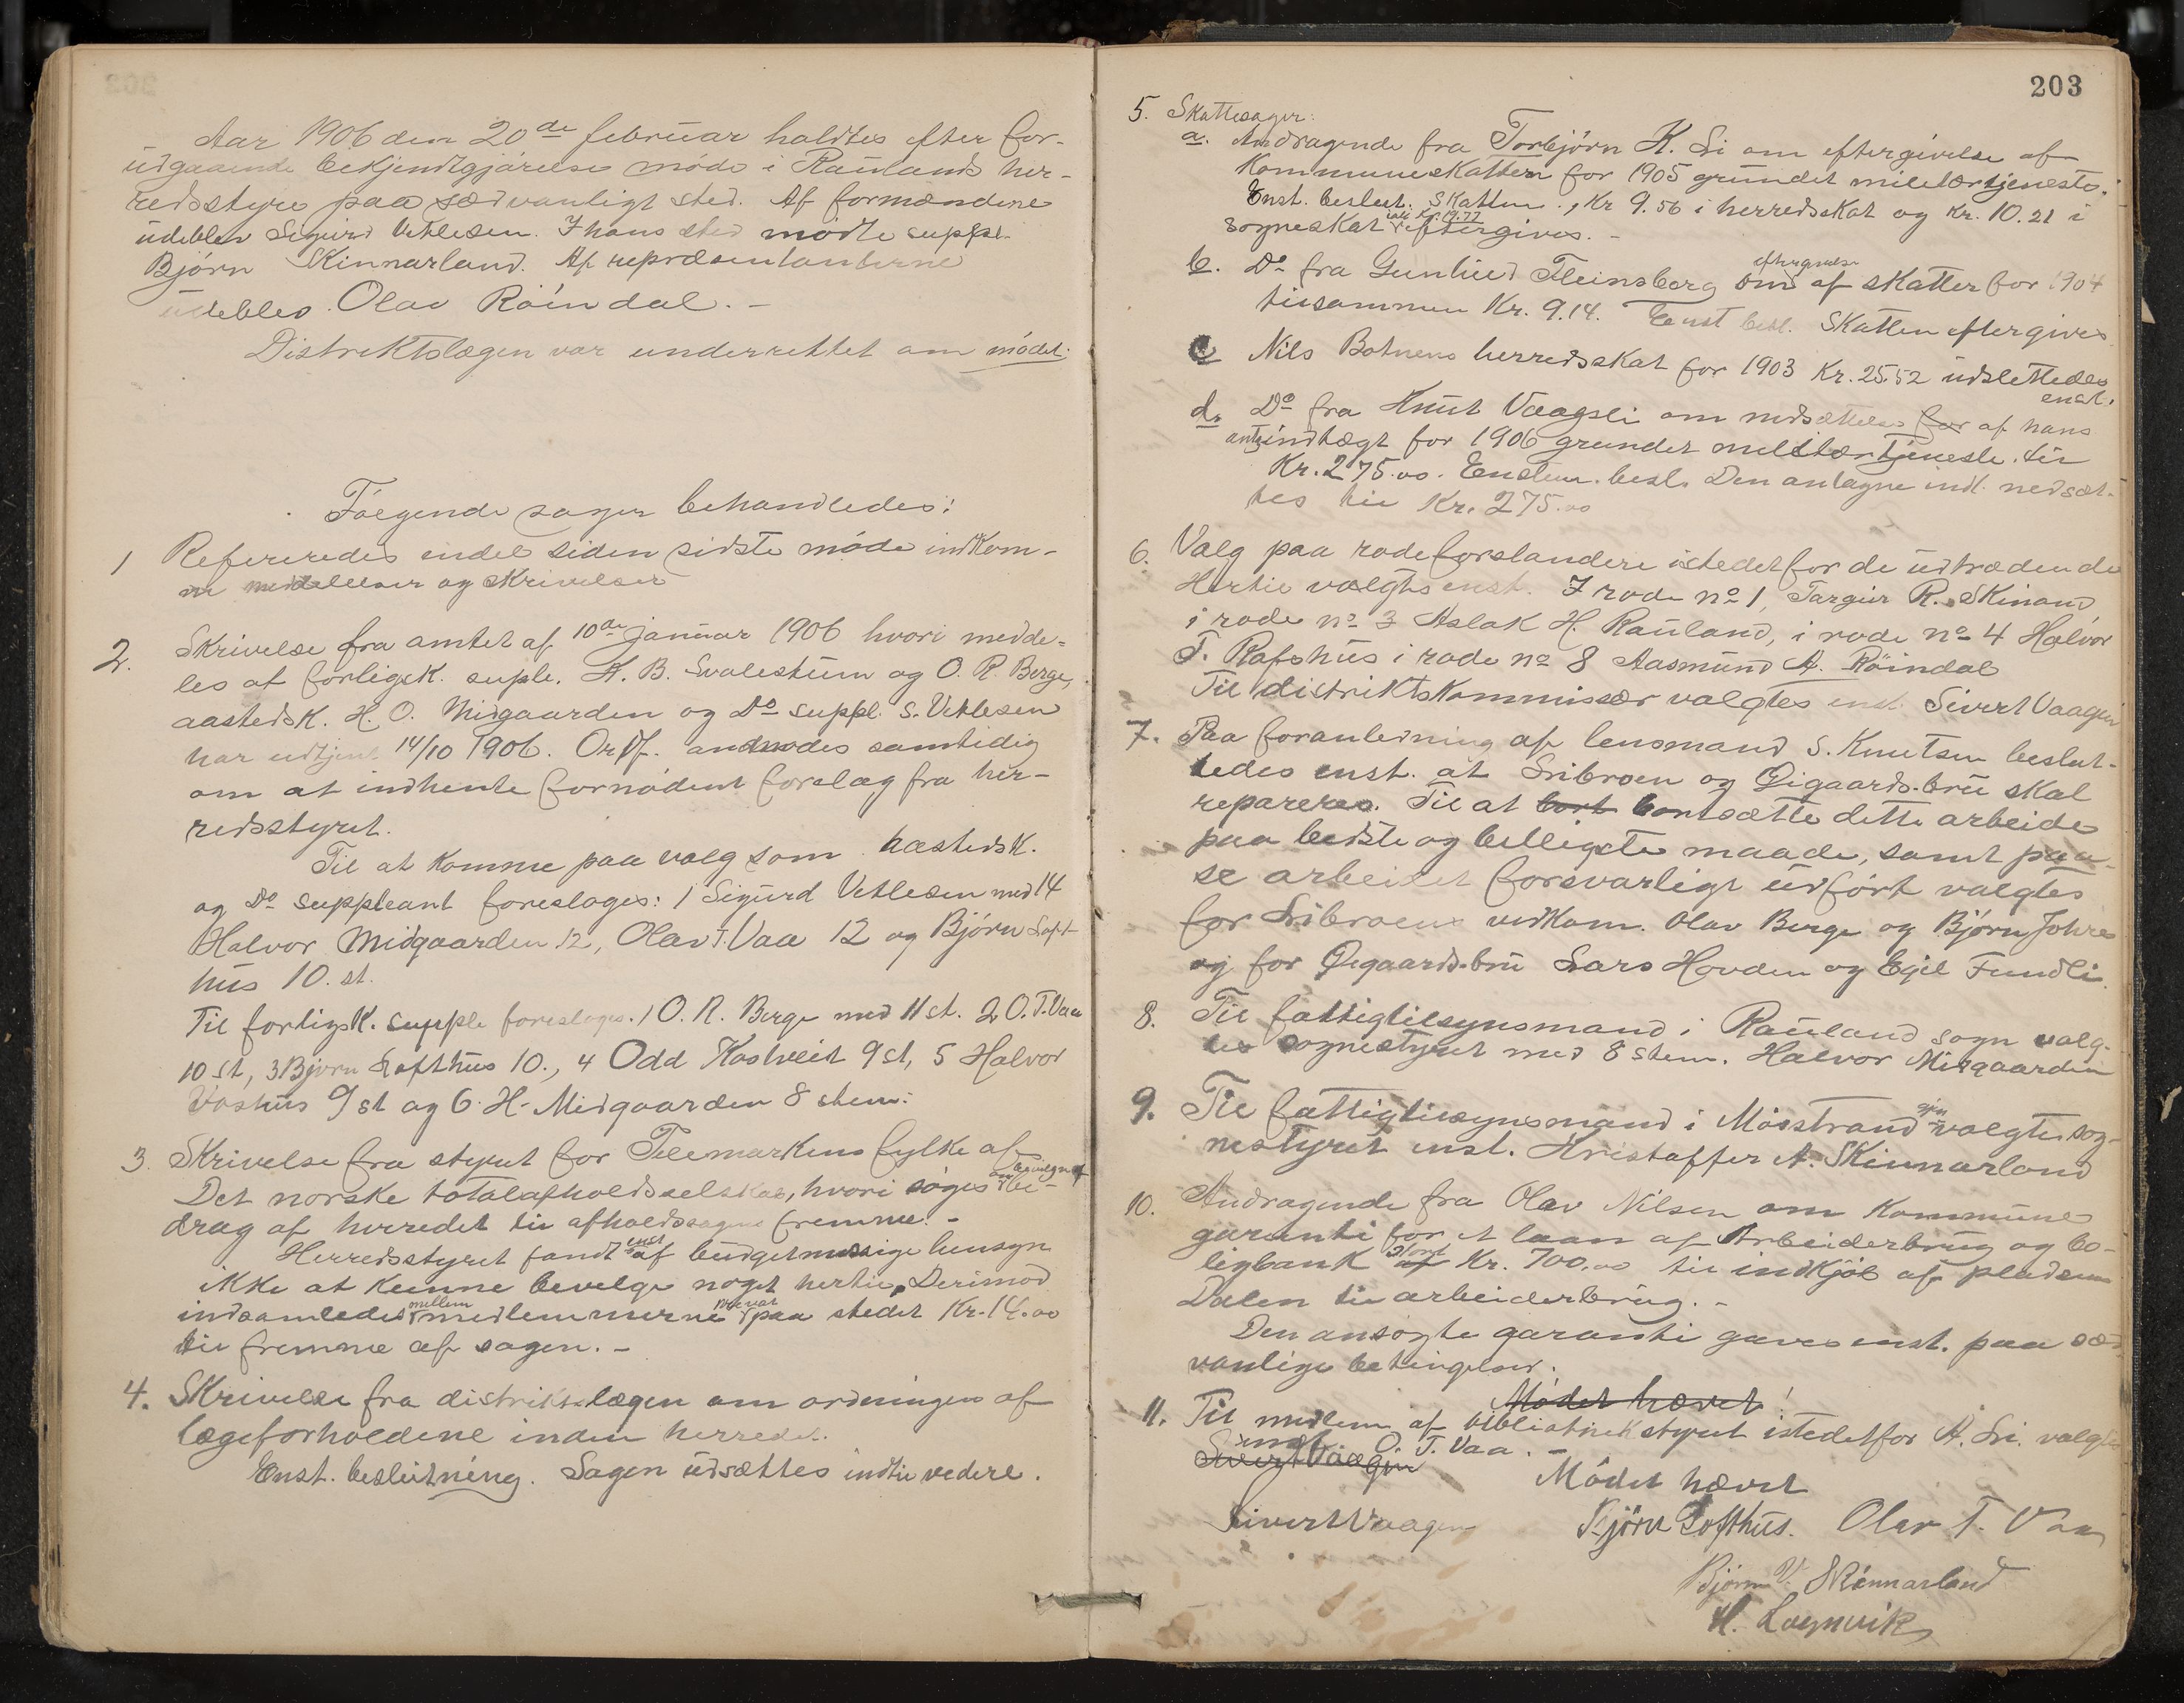 Aar 1906 den 20de februar holdtes efter for-
udgaaende bekjendtgjørelse møde i Raulands her-
redsstyre paa sædvanligt sted. Af formændene
udeblev Sigurd Vetlesen. I hans sted mødte suppl.
Bjørn Skinnarland. Af repræsentanterne
udeblev Olav Röindal. -
Distriktslægen var underrettet om mødet.
Følgende sager behandledes:
1 Refereredes endel siden sidste møde indkom-
ne meddelelser og skrivelser
2. Skrivelse fra amtet af 10de januar 1906 hvori medde-
les at forligsk. suple. A. B. Svalestuen og O. R. Berge,
aastedsk. H. O. Midgaarden og Do suppl. S. Vetlesen
har udtjent 14/10 1906. Ordf. anmodes samtidig
om at indhente fornødent forslag fra her-
redsstyret.
Til at komme paa valg som aastedsk.
og Do suppleant foresloges: 1 Sigurd Vetlesen med 14
Halvor Midgaarden 12, Olav T. Vaa 12 og Bjørn Loft-
hus 10. st.
Til forligsk. supple foresloges. 1 O. R. Berge med 11 st. 2 O. T. Vaa
10 st, 3 Bjørn Lofthus 10., 4 Odd Kostveit 9 st, 5 Halvor
Vashus 9 st og 6. H. Midgaarden 8 stem.
3. Skrivelse fra styret for Telemarkens fylke af
Det norske totalafholdsselskab, hvori søges om bevilgn. af bi-
drag af herredet til afholdssagens fremme. -
Herredsstyret fandt enst af budgetmæssige hensyn
ikke at kunne bevilge noget hertil. Derimod
indsamledes mellem medlemmerne privat paa stedet Kr. 14.00
til fremme af sagen. -
4. Skrivelse fra distriktslægen om ordningen af
lægeforholdene inden herredet.
Enst. beslutning. Sagen udsættes indtil videre.
203
5. Skattesager:
a. Andragende fra Torbjørn K. Li om eftergivelse af
Kommuneskatten for 1905 grundet militærtjeneste.
Enst. beslut. Skatten, Kr 9.56 i herredsskat og Kr. 10.21 i
sogneskat ialt Kr. 19.77 eftergives. -
b. Do fra Gunhild Fleinsberg om eftergivelse af skatter for 1904
tilsammen Kr. 9.14. Enst besl. Skatten eftergives
c Nils Botnens herredsskat for 1903 Kr. 25.52 udslettedes
enst.
d. Do fra Knut Vaagsli om nedsættelse for af hans
ant. indtægt for 1906 grundet militærtjeneste til
Kr. 275.00. Enstem. besl. Den antagne indt. nedsæt-
tes til Kr. 275.00
6. Valg paa rodeforstandere istedetfor de udtrædende
Hertil valgtes enst. I rode no 1, Targeir R. Skinand
i rode no 3 Aslak H. Rauland, i rode no 4 Halvor
T. Rafshus i rode no 8 Aasmund A. Röindal
Til distriktskommissær valgtes enst. Sivert Vaagen
7. Paa foranledning af lensmand S. Knutsen beslut-
tedes enst. at Libroen og Øigaards-bru skal
repareres. Til at bort bortsætte dette arbeide
paa bedste og billigste maade, samt paa-
se arbeidet forsvarligt udført valgtes
for Libroens vedkom. Olav Berge og Bjørn Johre
og for Øigaards-bru Lars Hovden og Egil Fundli.
8. Til fattigtilsynsmand i Rauland sogn valg-
tes sognestyret med 8 stem. Halvor Midgaarden
9. Til fattigtilsynsmand i Møsstrand gjen valgtes sog-
nestyret enst. Kristoffer A. Skinnarland
10. Andragende fra Olav Nilsen om Kommune
garanti for et laan af Arbeiderbrug og bo-
ligbank stort af Kr. 700.00 til indkjøb af pladsen
Dalen til arbeiderbrug. -
Den ansøgte garanti gaves enst. paa sæd
vanlige betingelser.
Mødet hævet!
11. Til medlem af bibliothekstyret istedetfor A. Li. valgtes
enst O. T. Vaa. -
Sivert Vaagen
Mødet hævet
Sivert Vaagen Bjørn Lofthus. Olav T. Vaa
Bjørn V. Skinnarland
H. Lognvik